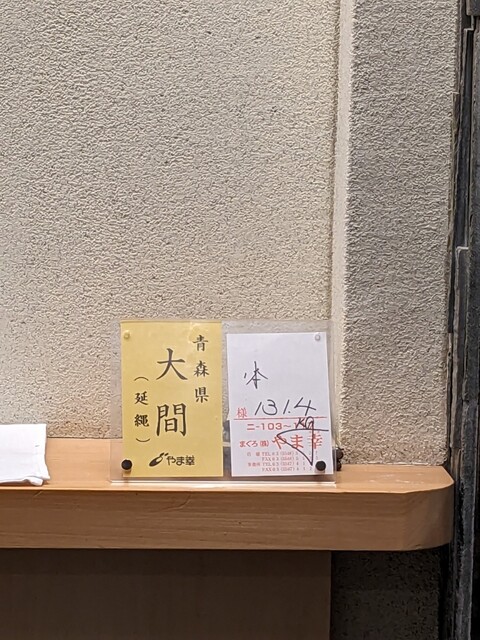 青森県
大間
(延縄)
やま幸
本
131.4
様
ニ-103〜
まぐろ㈱やま幸